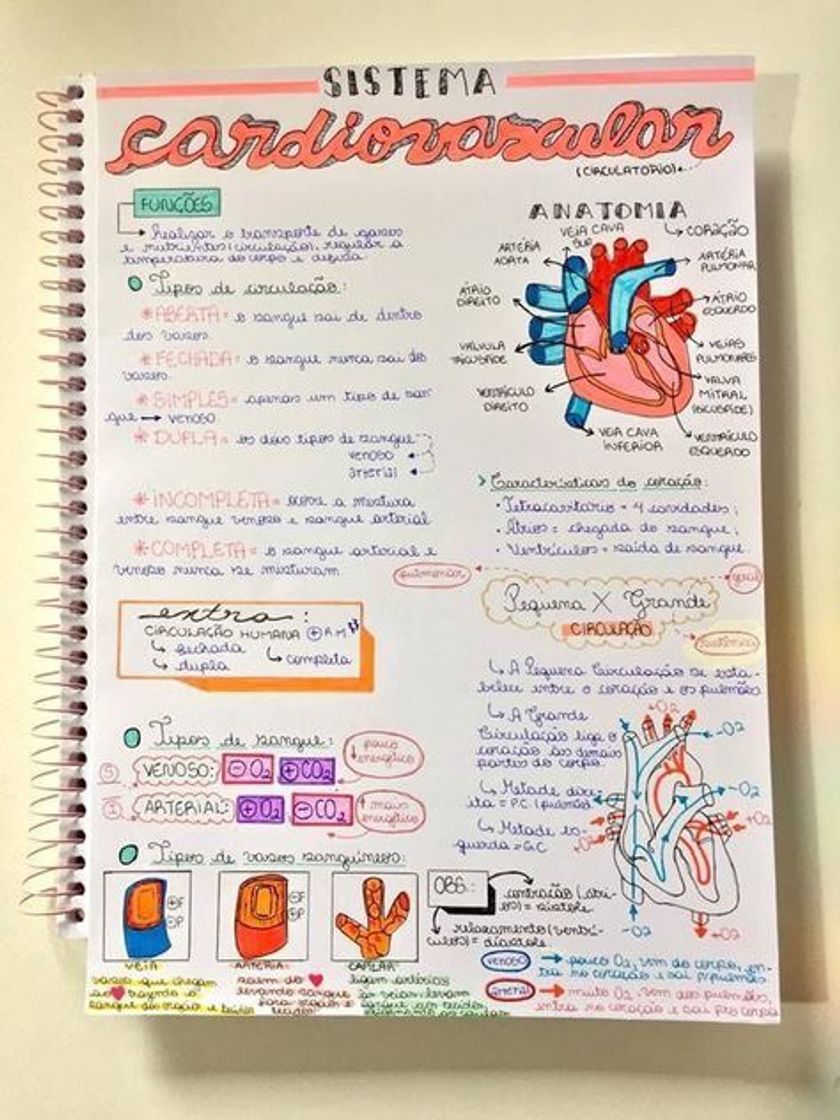 SISTEMA
cardiovascular
(CIRCULATÓRIO)
FUNÇÕES
Realizar o transporte de gases
e nutrientes (circulação), regular a
temperatura do corpo e defesa.
Tipos de circulação:
*ABERTA= o sangue sai de dentro
dos vasos.
*FECHADA= o sangue nunca sai dos
vasos.
*SIMPLES= apenas um tipo de san
gue → venoso.
*DUPLA= os dois tipos de sangue
venoso
arterial
*INCOMPLETA= ocorre a mistura
entre sangue venoso e sangue arterial.
*COMPLETA= o sangue arterial e
venoso nunca se misturam
extra:
CIRCULAÇÃO HUMANA
↳ fechada
↳ dupla
↳ completa
Tipos de sangue:
VENOSO: -O2 +CO2
pouco
energético
ARTERIAL: +O2 -CO2
mais
energético
Tipos de vasos sanguíneos:
+F
-P
-F
+P
VEIA
ARTÉRIA
CAPILAR
vasos que chegam
ao ♥ trazendo o
saem do ♥
levando sangue
ANATOMIA
↳ CORAÇÃO
VEIA CAVA
SUP
ARTÉRIA
AORTA
ARTÉRIA
PULMONAR
ÁTRIO
DIREITO
ÁTRIO
ESQUERDO
VÁLVULA
TRICÚSPIDE
VEIAS
PULMONARES
VENTRÍCULO
DIREITO
VALVA
MITRAL
(BICÚSPIDE)
VEIA CAVA
INFERIOR
VENTRÍCULO
ESQUERDO
Características do coração:
• Tetracavitário = 4 cavidades;
• Átrios = chegada do sangue;
• Ventrículos = saída de sangue.
pulmonar
geral
Pequena X Grande
CIRCULAÇÃO
sistêmica
↳ A Pequena Circulação se esta-
belece entre o coração e os pulmões.
↳ A Grande
Circulação liga o
coração às demais
partes do corpo.
↳ Metade dire
ita = P.C. (pulmões
↳ Metade es-
querda = G.C
+O2
-O2
-O2
+O2
-O2
+O2
OBS.:
contração (átri-
os) = sístole
relaxamento (ventrí-
culos) = diástole
venoso → pouco O2, vem do corpo, en-
tra no coração e sai p/ pulmões
arterial → muito O2, vem dos pulmões,
entra no coração e sai pro corpo